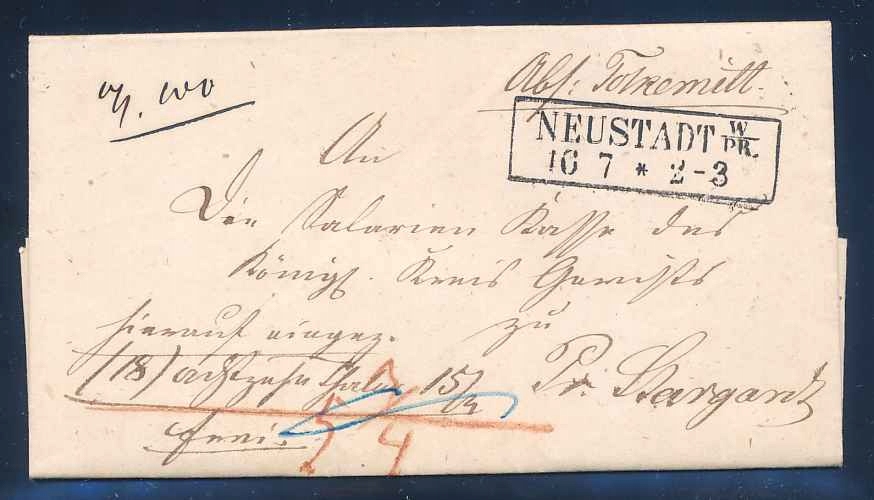 Abs: Tolkemitt.
NEUSTADT W/PR.
16 7 * 2-3
An
Die Salarien Kasse des
Königl. Kreis Gerichts
zu
Pr. Stargardt
hierauf eingez.
(18) achtzehn Thaler 15
frei.
4